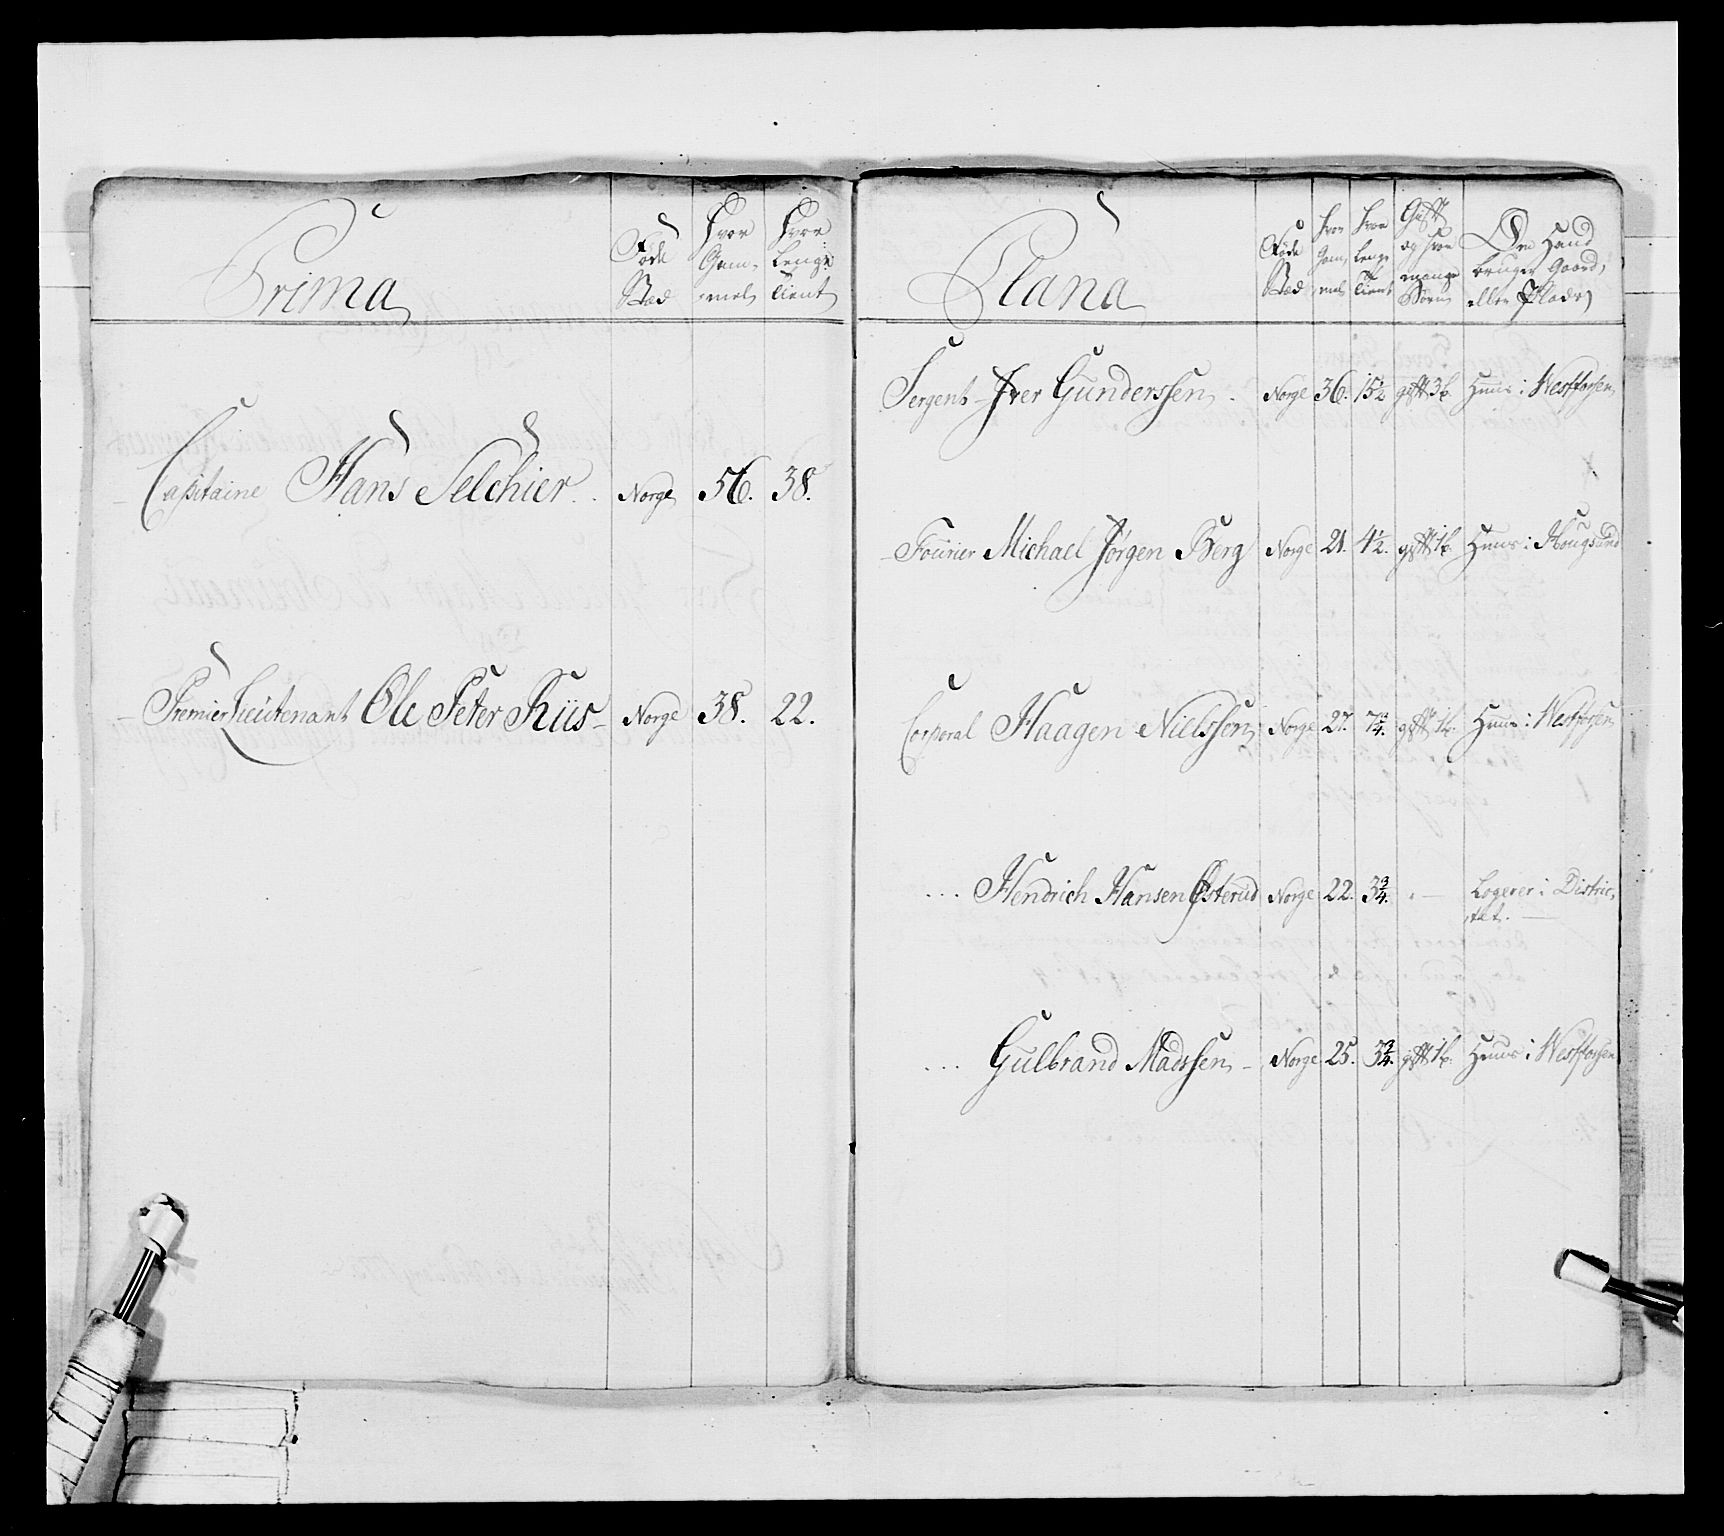 Prima
Føde Stæd
Hvor Gammel
Hvor Lenge Tient
Capitaine Hans Selchier. Norge 56. 38.
Premier Lieutenant Ole Peter Riis Norge 38. 22.
Plana
Føde Stæd
Hvor Gammel
Hvor Lenge Tient
Gift og hvor mange Børn
Om Hand bruger Gaard, eller Plads
Sergent Iver Gunderssen. Norge 36. 15½ gift 3b. Huus i Westfossen
Fourier Michael Jørgen Berg Norge 21. 4½. gift 1b. Huus i Hougsund
Corporal Haagen Nielssen Norge 27. 7¾. gift 1b. Huus i Westfossen
... Hendrich Hansen Østerud Norge 22. 3¾. — Logerer i Distric-
tet.
... Gulbrand Madssen Norge 25. 3¾. gift 1b. Huus i Westfossen